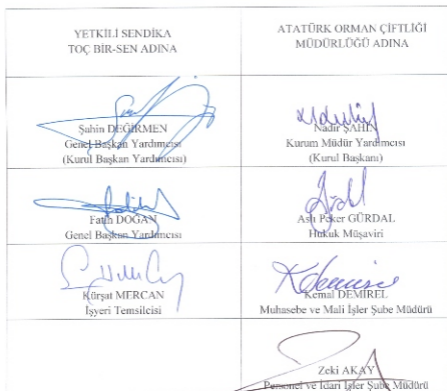 YETKİLİ SENDİKA
TOÇ BİR-SEN ADINA
ATATÜRK ORMAN ÇİFTLİĞİ
MÜDÜRLÜĞÜ ADINA
Şahin DEĞİRMEN
Genel Başkan Yardımcısı
(Kurul Başkan Yardımcısı)
Nadir ŞAHİN
Kurum Müdür Yardımcısı
(Kurul Başkanı)
Fatih DOĞAN
Genel Başkan Yardımcısı
Aslı Peker GÜRDAL
Hukuk Müşaviri
Kürşat MERCAN
İşyeri Temsilcisi
Kemal DEMİREL
Muhasebe ve Mali İşler Şube Müdürü
Zeki AKAY
Personel ve İdari İşler Şube Müdürü